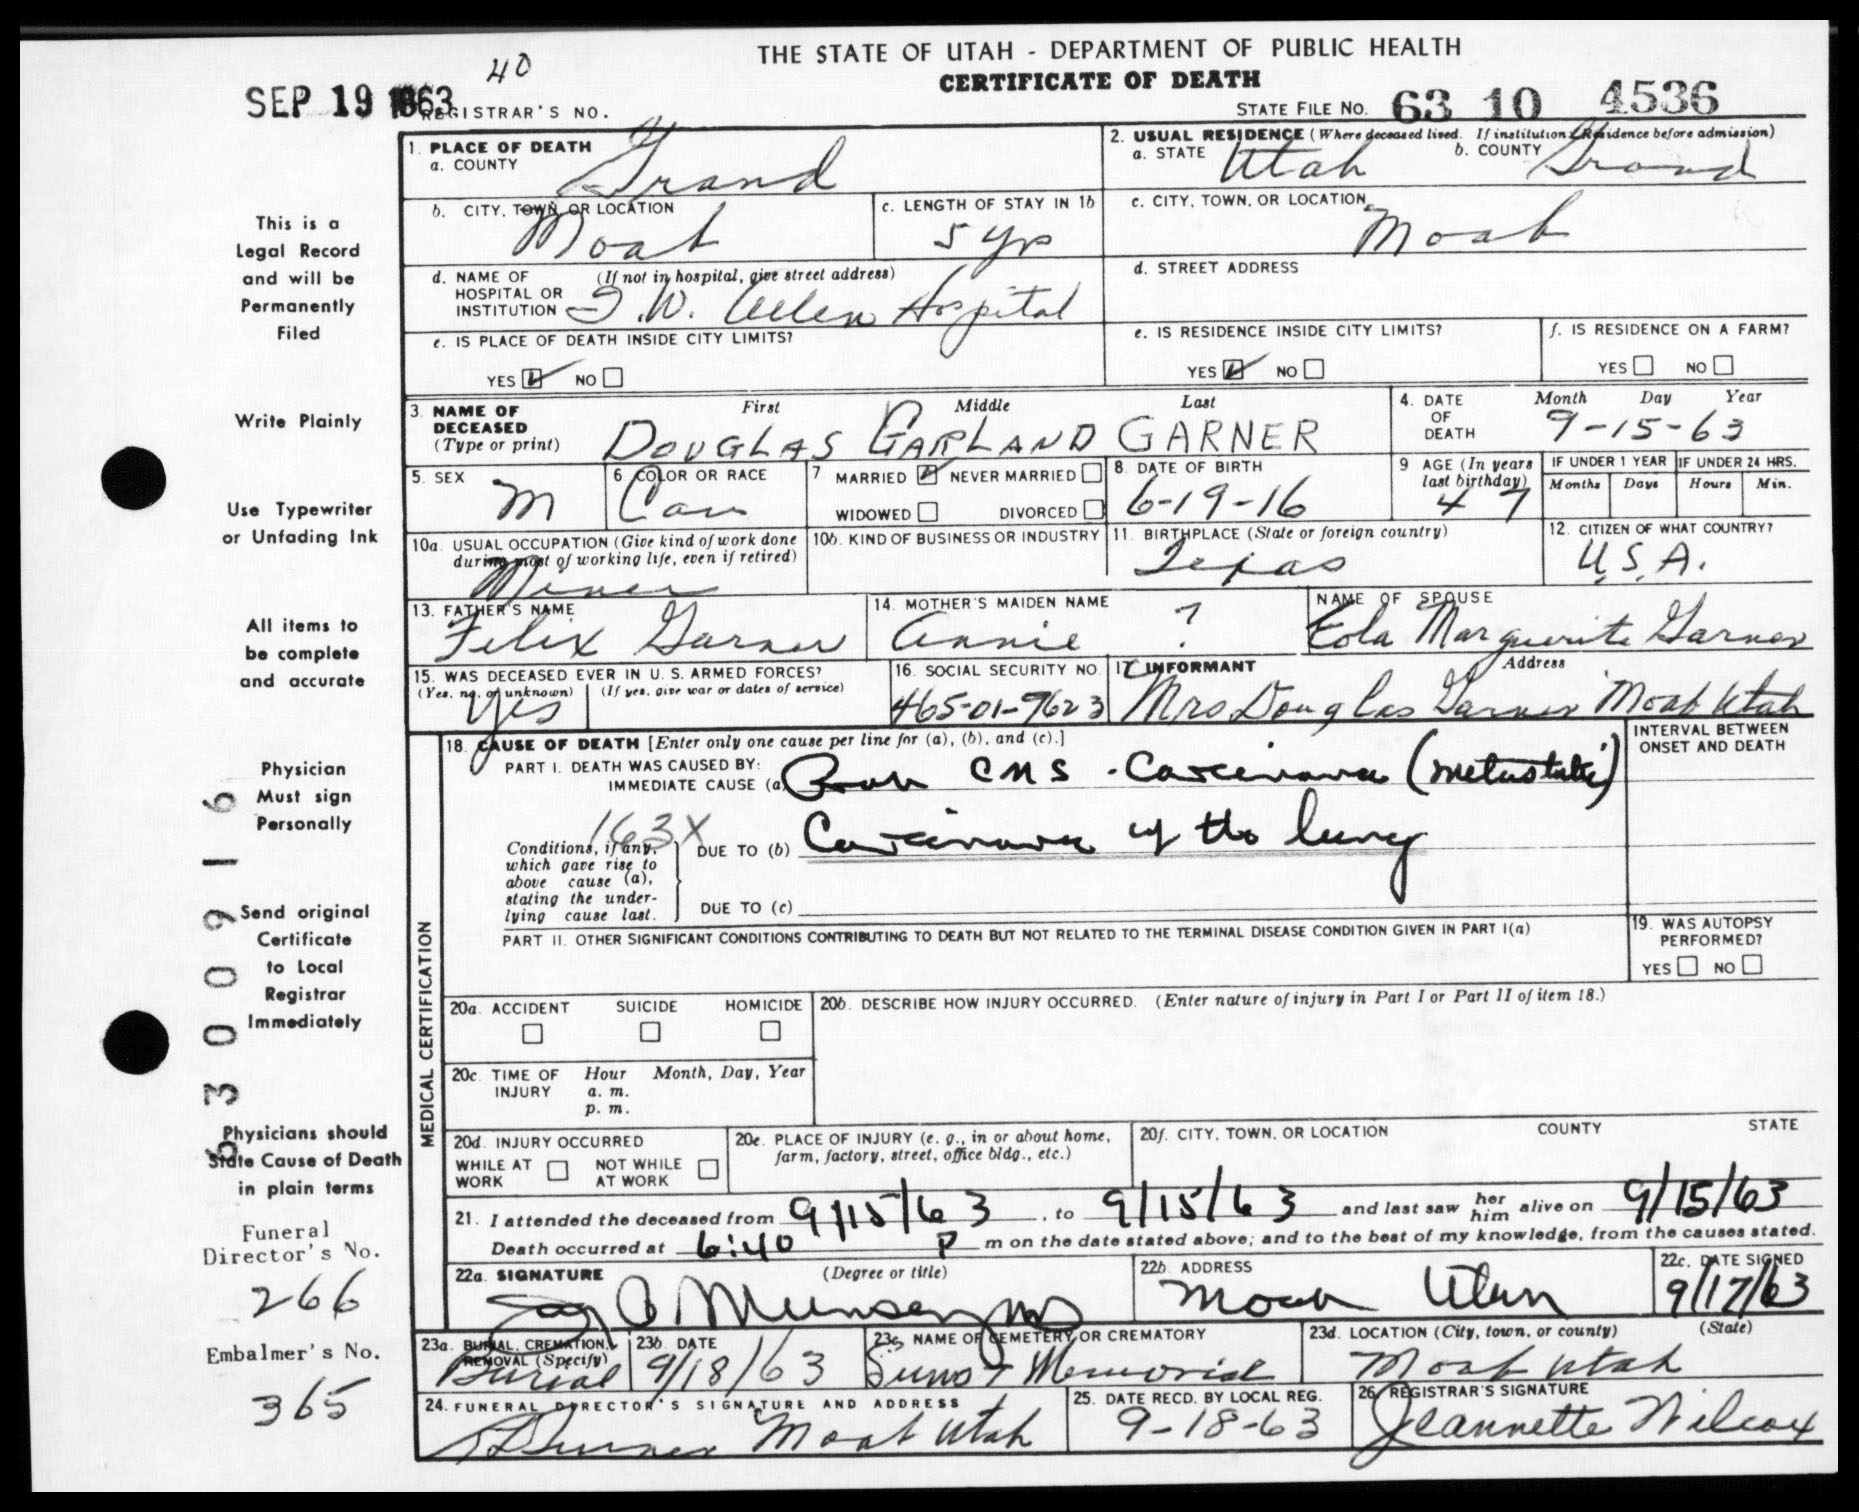 THE STATE OF UTAH - DEPARTMENT OF PUBLIC HEALTH
CERTIFICATE OF DEATH
SEP 19 1963
40
REGISTRAR'S NO.
STATE FILE NO. 63 10 4536
This is a
Legal Record
and will be
Permanently
Filed
Write Plainly
Use Typewriter
or Unfading Ink
All items to
be complete
and accurate
Physician
Must sign
Personally
Send original
Certificate
to Local
Registrar
Immediately
Physicians should
State Cause of Death
in plain terms
Funeral
Director's No.
266
Embalmer's No.
365
6300916
1. PLACE OF DEATH
a. COUNTY
Grand
2. USUAL RESIDENCE (Where deceased lived. If institution: Residence before admission)
a. STATE Utah b. COUNTY Grand
b. CITY, TOWN, OR LOCATION
Moab
c. LENGTH OF STAY IN 1b
5 yrs
c. CITY, TOWN, OR LOCATION
Moab
d. NAME OF (If not in hospital, give street address)
HOSPITAL OR
INSTITUTION I. W. Allen Hospital
d. STREET ADDRESS
e. IS PLACE OF DEATH INSIDE CITY LIMITS?
YES NO
e. IS RESIDENCE INSIDE CITY LIMITS?
YES NO
f. IS RESIDENCE ON A FARM?
YES NO
3. NAME OF
DECEASED
(Type or print)
First Middle Last
DOUGLAS GARLAND GARNER
4. DATE
OF
DEATH
Month Day Year
9-15-63
5. SEX
M
6 COLOR OR RACE
Cau
7 MARRIED NEVER MARRIED
WIDOWED DIVORCED
8. DATE OF BIRTH
6-19-16
9 AGE (In years
last birthday)
47
IF UNDER 1 YEAR IF UNDER 24 HRS.
Months Days Hours Min.
10a. USUAL OCCUPATION (Give kind of work done
during most of working life, even if retired)
Miner
10b. KIND OF BUSINESS OR INDUSTRY
11. BIRTHPLACE (State or foreign country)
Texas
12. CITIZEN OF WHAT COUNTRY?
U.S.A.
13. FATHER'S NAME
Felix Garner
14. MOTHER'S MAIDEN NAME
Annie ?
NAME OF SPOUSE
Eola Marguerite Garner
15. WAS DECEASED EVER IN U. S. ARMED FORCES?
(Yes, no, or unknown) (If yes, give war or dates of service)
Yes
16. SOCIAL SECURITY NO.
465-01-7623
17. INFORMANT Address
Mrs Douglas Garner Moab Utah
MEDICAL CERTIFICATION
18. CAUSE OF DEATH [Enter only one cause per line for (a), (b), and (c).]
INTERVAL BETWEEN
ONSET AND DEATH
PART I. DEATH WAS CAUSED BY:
IMMEDIATE CAUSE (a) CNS - Carcinoma (metastatic)
163X
Conditions, if any,
which gave rise to
above cause (a),
stating the under-
lying cause last.
DUE TO (b) Carcinoma of the lung
DUE TO (c)
PART II. OTHER SIGNIFICANT CONDITIONS CONTRIBUTING TO DEATH BUT NOT RELATED TO THE TERMINAL DISEASE CONDITION GIVEN IN PART I(a)
19. WAS AUTOPSY
PERFORMED?
YES NO
20a. ACCIDENT SUICIDE HOMICIDE
20b. DESCRIBE HOW INJURY OCCURRED. (Enter nature of injury in Part I or Part II of item 18.)
20c. TIME OF Hour Month, Day, Year
INJURY a. m.
p. m.
20d. INJURY OCCURRED
WHILE AT NOT WHILE
WORK AT WORK
20e. PLACE OF INJURY (e. g., in or about home,
farm, factory, street, office bldg., etc.)
20f. CITY, TOWN, OR LOCATION COUNTY STATE
21. I attended the deceased from 9/15/63, to 9/15/63 and last saw her him alive on 9/15/63
Death occurred at 6:40 P m on the date stated above; and to the best of my knowledge, from the causes stated.
22a. SIGNATURE (Degree or title)
Munsey MD
22b. ADDRESS
Moab Utah
22c. DATE SIGNED
9/17/63
23a. BURIAL, CREMATION,
REMOVAL (Specify)
Burial
23b. DATE
9/18/63
23c. NAME OF CEMETERY OR CREMATORY
Sunset Memorial
23d. LOCATION (City, town, or county) (State)
Moab Utah
24. FUNERAL DIRECTOR'S SIGNATURE AND ADDRESS
Moab Utah
25. DATE RECD. BY LOCAL REG.
9-18-63
26. REGISTRAR'S SIGNATURE
Jeannette Wilcox